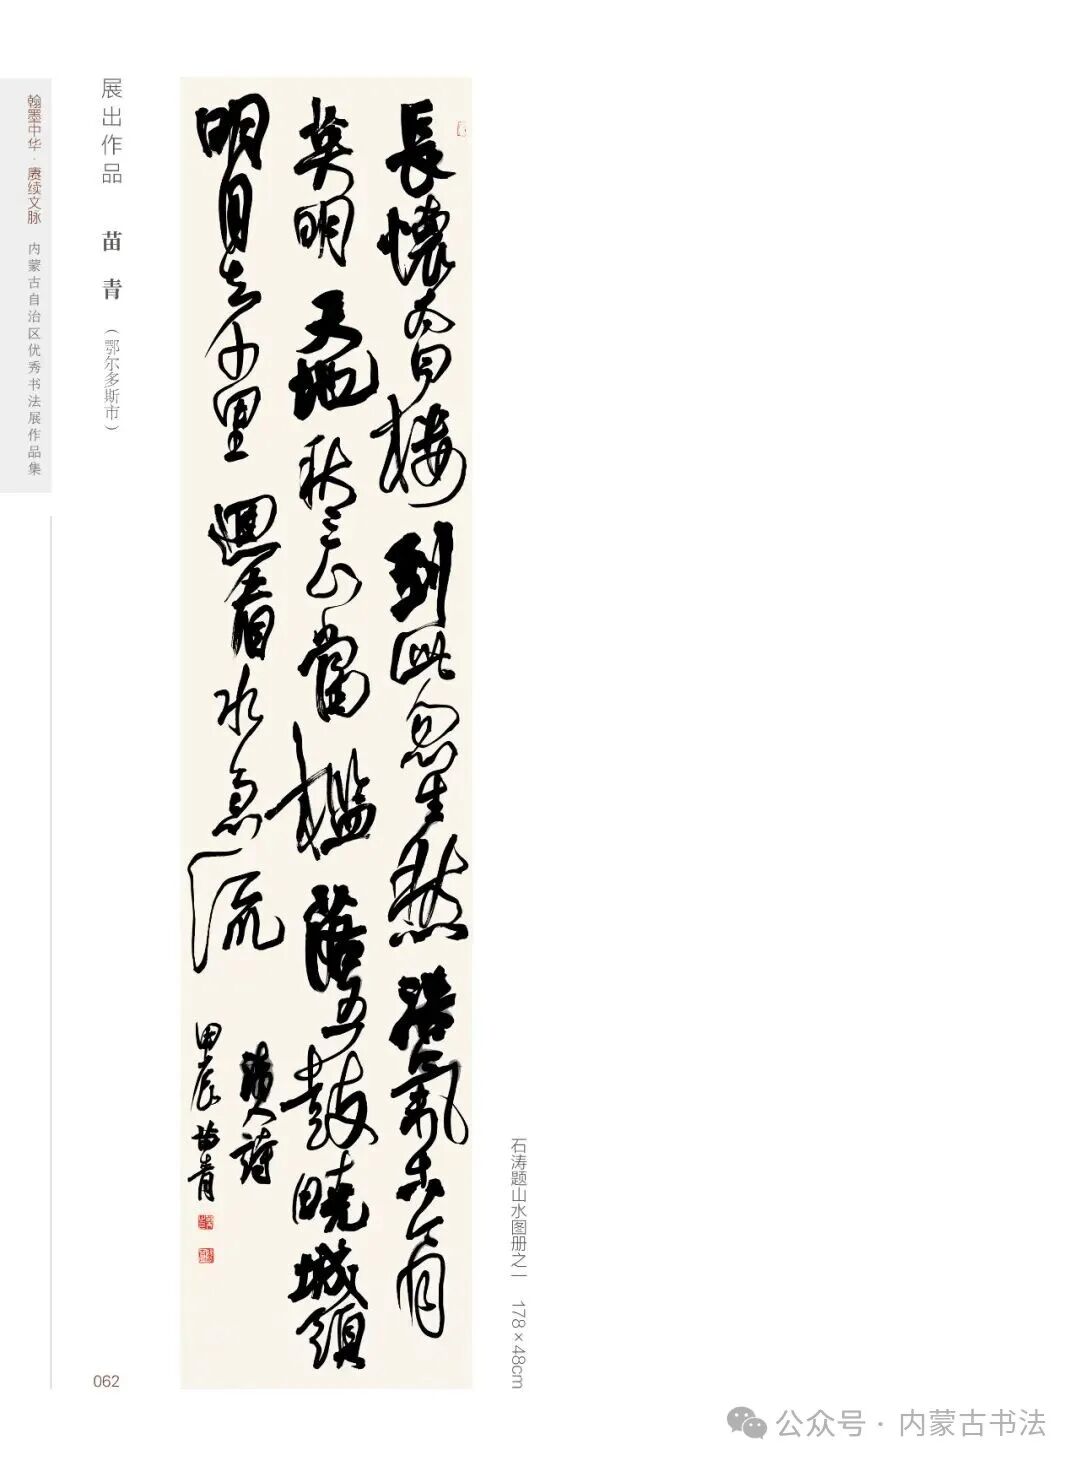 翰墨中华·赓续文脉 内蒙古自治区优秀书法展作品集
展出作品 苗青 （鄂尔多斯市）
長懷太白樓到此忽生愁浩氣
明天地秋三山當檻落五鼓曉城頭
明日去千里迴看水急流
清人詩
甲辰苗青
石涛题山水图册之一 178×48cm
062
公众号·内蒙古书法